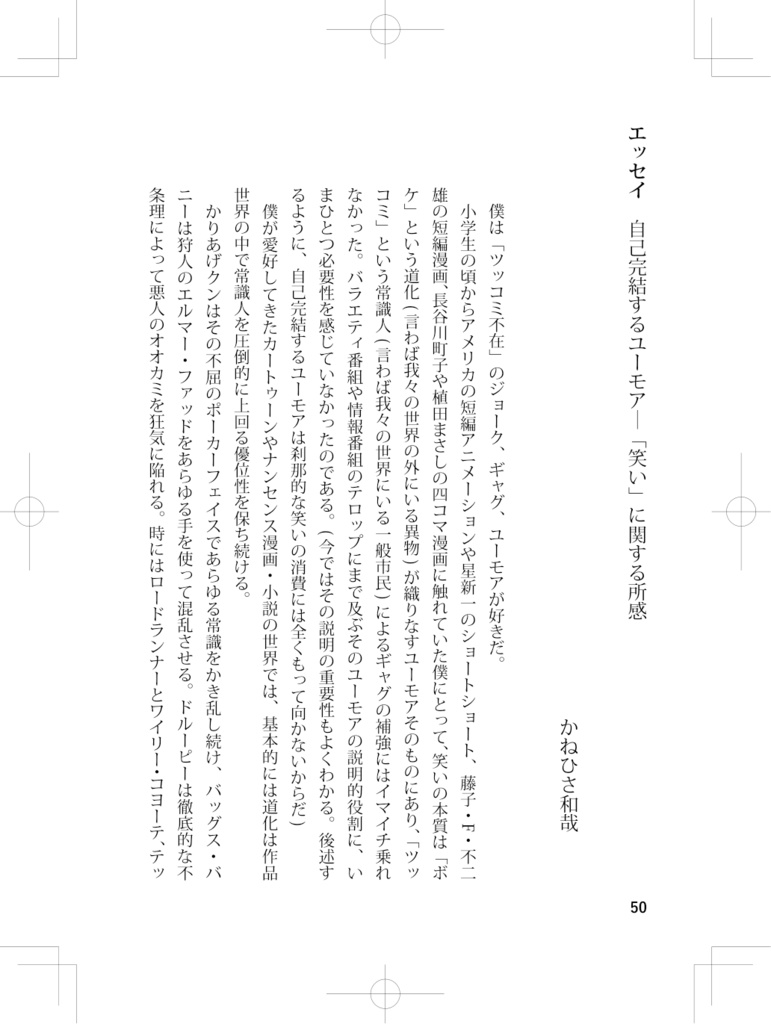 エッセイ　自己完結するユーモア―「笑い」に関する所感
かねひさ和哉
僕は「ツッコミ不在」のジョーク、ギャグ、ユーモアが好きだ。
小学生の頃からアメリカの短編アニメーションや星新一のショートショート、藤子・F・不二
雄の短編漫画、長谷川町子や植田まさしの四コマ漫画に触れていた僕にとって、笑いの本質は「ボ
ケ」という道化(言わば我々の世界の外にいる異物)が織りなすユーモアそのものにあり、「ツッ
コミ」という常識人(言わば我々の世界にいる一般市民)によるギャグの補強にはイマイチ乗れ
なかった。バラエティ番組や情報番組のテロップにまで及ぶそのユーモアの説明的役割に、い
まひとつ必要性を感じていなかったのである。(今ではその説明の重要性もよくわかる。後述す
るように、自己完結するユーモアは刹那的な笑いの消費には全くもって向かないからだ)
僕が愛好してきたカートゥーンやナンセンス漫画・小説の世界では、基本的には道化は作品
世界の中で常識人を圧倒的に上回る優位性を保ち続ける。
かりあげクンはその不屈のポーカーフェイスであらゆる常識をかき乱し続け、バッグス・バ
ニーは狩人のエルマー・ファッドをあらゆる手を使って混乱させる。ドルーピーは徹底的な不
条理によって悪人のオオカミを狂気に陥れる。時にはロードランナーとワイリー・コヨーテ、テッ
50